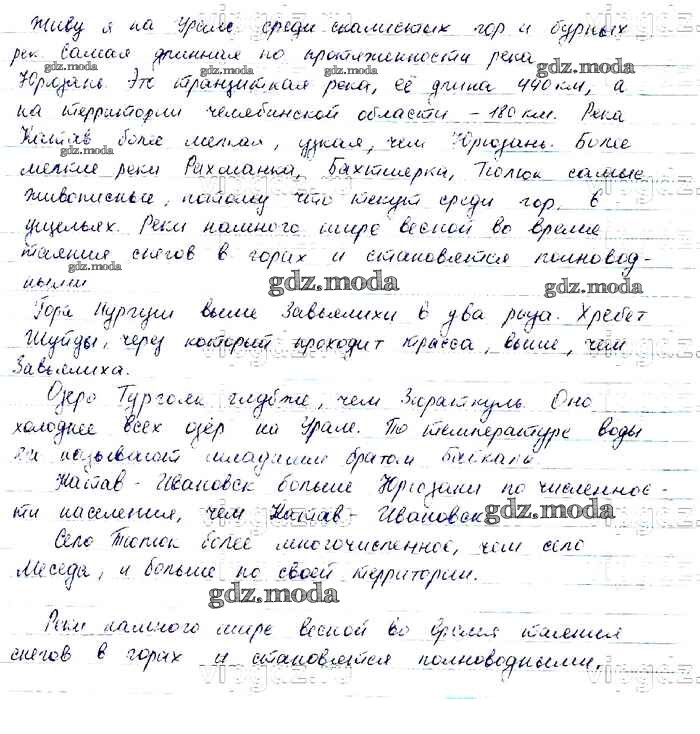 Живу я на Урале среди скалистых гор и бурных
рек. Самая длинная по протяженности река
Юрюзань. Это транзитная река, её длина 440 км, а
на территории челябинской области – 180 км. Река
Катав более мелкая, узкая, чем Юрюзань. Более
мелкие реки Рахманка, Бахтиярка, Тюлюк самые
живописные, потому что текут среди гор, в
ущельях. Реки намного шире весной во время
таяния снегов в горах и становятся полновод-
ными
Гора Нургуш выше Завьялихи в два раза. Хребет
Шуйды, через который проходит трасса, выше, чем
Завьялиха.
Озеро Тургояк глубже, чем Зюраткуль. Оно
холоднее всех озёр на Урале. По температуре воды
его называют младшим братом Байкала.
Катав-Ивановск больше Юрюзани по численнос-
ти населения, чем Катав-Ивановск
Село Тюлюк более многочисленное, чем село
Меседа, и больше по своей территории.
Реки намного шире весной во время таяния
снегов в горах и становятся полноводными.
gdz.moda
gdz.moda
gdz.moda
gdz.moda
gdz.moda
gdz.moda
gdz.moda
gdz.moda
gdz.moda
gdz.moda
vipgdz.ru